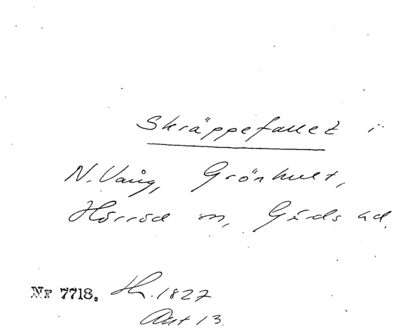 Skräppefallet i
N. Vång, Grönhult,
Hörröd sn, Gärds hd.
Nr 7718. Lh. 1827
Akt 13.